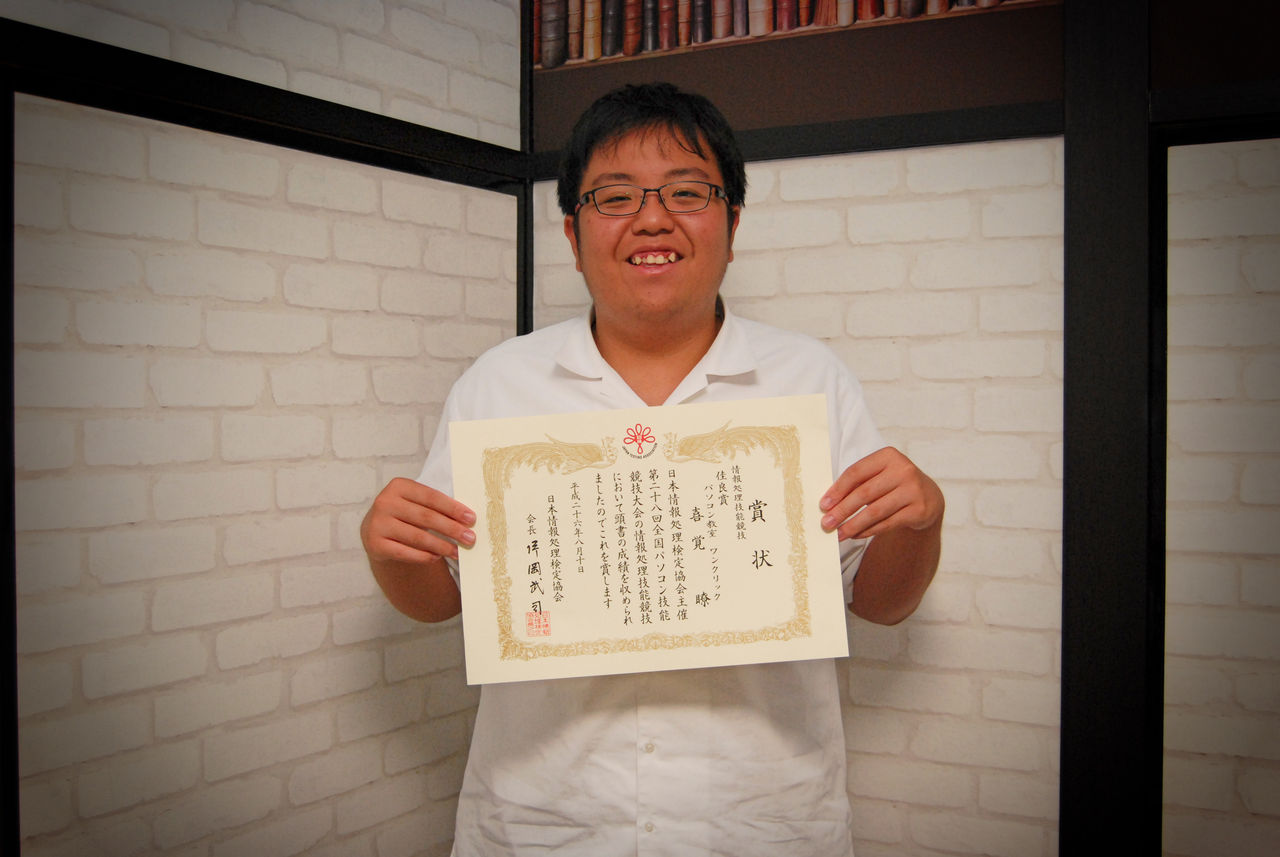 JAPAN TESTING ASSOCIATION
賞状
情報処理技能競技
佳良賞
パソコン教室 ワンクリック
喜覚 瞭
日本情報処理検定協会主催
第二十八回全国パソコン技能
競技大会の情報処理技能競技
において頭書の成績を収められ
ましたのでこれを賞します
平成二十六年八月十日
日本情報処理検定協会
会長